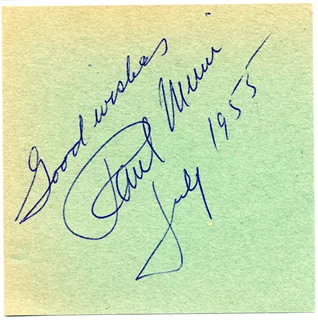 Good wishes
Paul Muni
July 1955